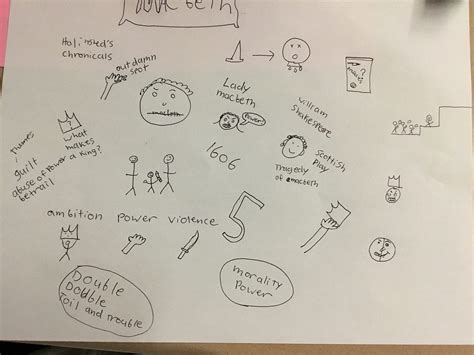 Holinsted's
chronicals
out damn
spot
macbeth
Lady
macbeth
Power
william
Shakespeare
?
macbeth
Themes
guilt
abuse of Power
betrail
what
makes
a King?
1606
Scottish
Play
Tragedy
of macbeth
ambition power violence
5
Double
Dobble
Toil and trouble
morality
Power